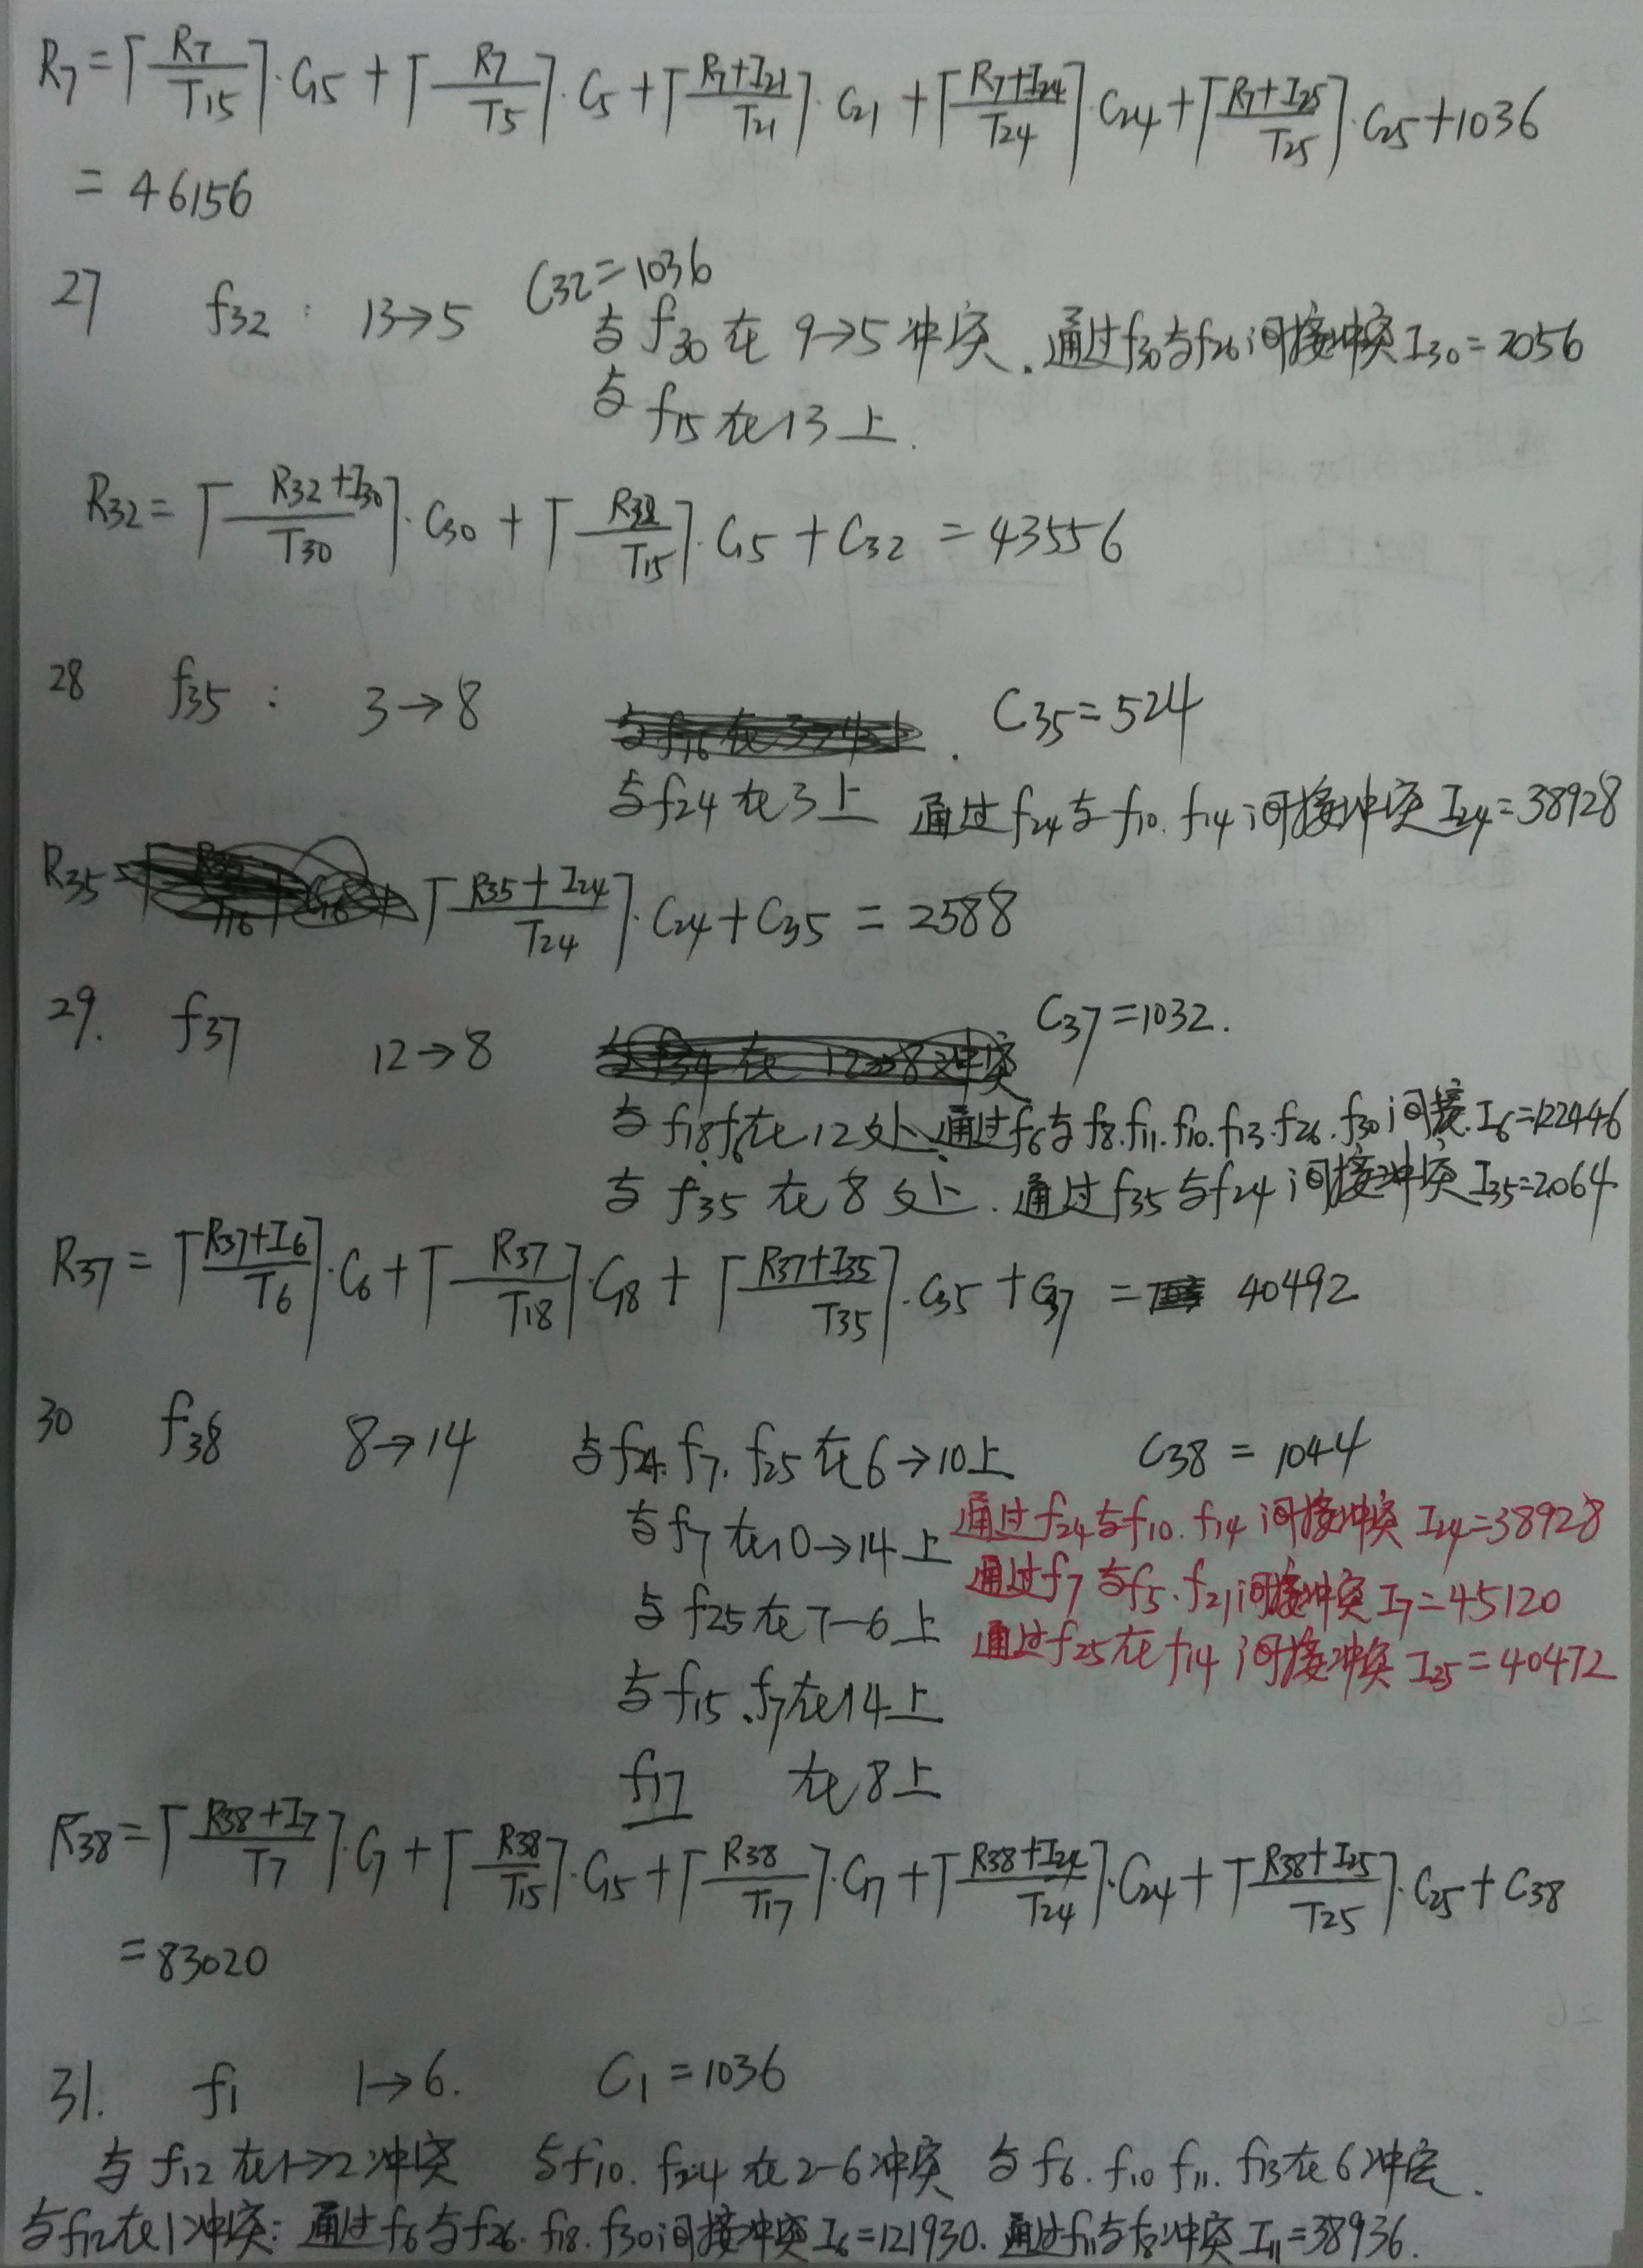 R₇ = ⌈R₇/T₁₅⌉·C₁₅ + ⌈R₇/T₅⌉·C₅ + ⌈(R₇+I₂₁)/T₂₁⌉·C₂₁ + ⌈(R₇+I₂₄)/T₂₄⌉·C₂₄ + ⌈(R₇+I₂₅)/T₂₅⌉·C₂₅ + 1036
= 46156
27 f₃₂ : 13→5 C₃₂=1036
与f₃₀在 9→5冲突. 通过f₃₀与f₂₆间接冲突 I₃₀=2056
与f₁₅在13上.
R₃₂ = ⌈(R₃₂+I₃₀)/T₃₀⌉·C₃₀ + ⌈R₃₂/T₁₅⌉·C₁₅ + C₃₂ = 43556
28 f₃₅ : 3→8 C₃₅=524
与f₂₄在3上 通过f₂₄与f₁₀.f₁₄间接冲突 I₂₄=38928
R₃₅= ⌈(R₃₅+I₂₄)/T₂₄⌉·C₂₄ + C₃₅ = 2588
29. f₃₇ 12→8 C₃₇=1032.
与f₁₈.f₆在12处、通过f₆与f₈.f₁₁.f₁₀.f₁₃.f₂₆.f₃₀间接. I₆=122446
与f₃₅在8处. 通过f₃₅与f₂₄间接冲突 I₃₅=2064
R₃₇ = ⌈(R₃₇+I₆)/T₆⌉·C₆ + ⌈R₃₇/T₁₈⌉·C₁₈ + ⌈(R₃₇+I₃₅)/T₃₅⌉·C₃₅ + C₃₇ = 40492
30 f₃₈ 8→14 与f₂₄.f₇.f₂₅在6→10上 C₃₈ = 1044
与f₇在10→14上 通过f₂₄与f₁₀.f₁₄间接冲突 I₂₄=38928
通过f₇与f₅.f₂₁间接冲突 I₇=45120
与f₂₅在7-6上 通过f₂₅在f₁₄间接冲突 I₂₅=40472
与f₁₅.f₇在14上
f₁₇ 在8上
R₃₈ = ⌈(R₃₈+I₇)/T₇⌉·C₇ + ⌈R₃₈/T₁₅⌉·C₁₅ + ⌈R₃₈/T₁₇⌉·C₁₇ + ⌈(R₃₈+I₂₄)/T₂₄⌉·C₂₄ + ⌈(R₃₈+I₂₅)/T₂₅⌉·C₂₅ + C₃₈
= 83020
31. f₁ 1→6. C₁ = 1036
与f₁₂在1→2冲突 与f₁₀. f₂₄在2-6冲突 与f₆.f₁₀ f₁₁. f₁₃在6冲突.
与f₁₂在1冲突: 通过f₆与f₂₆.f₁₈.f₃₀间接冲突 I₆=121930. 通过f₁₁与f₈冲突 I₁₁=38936.